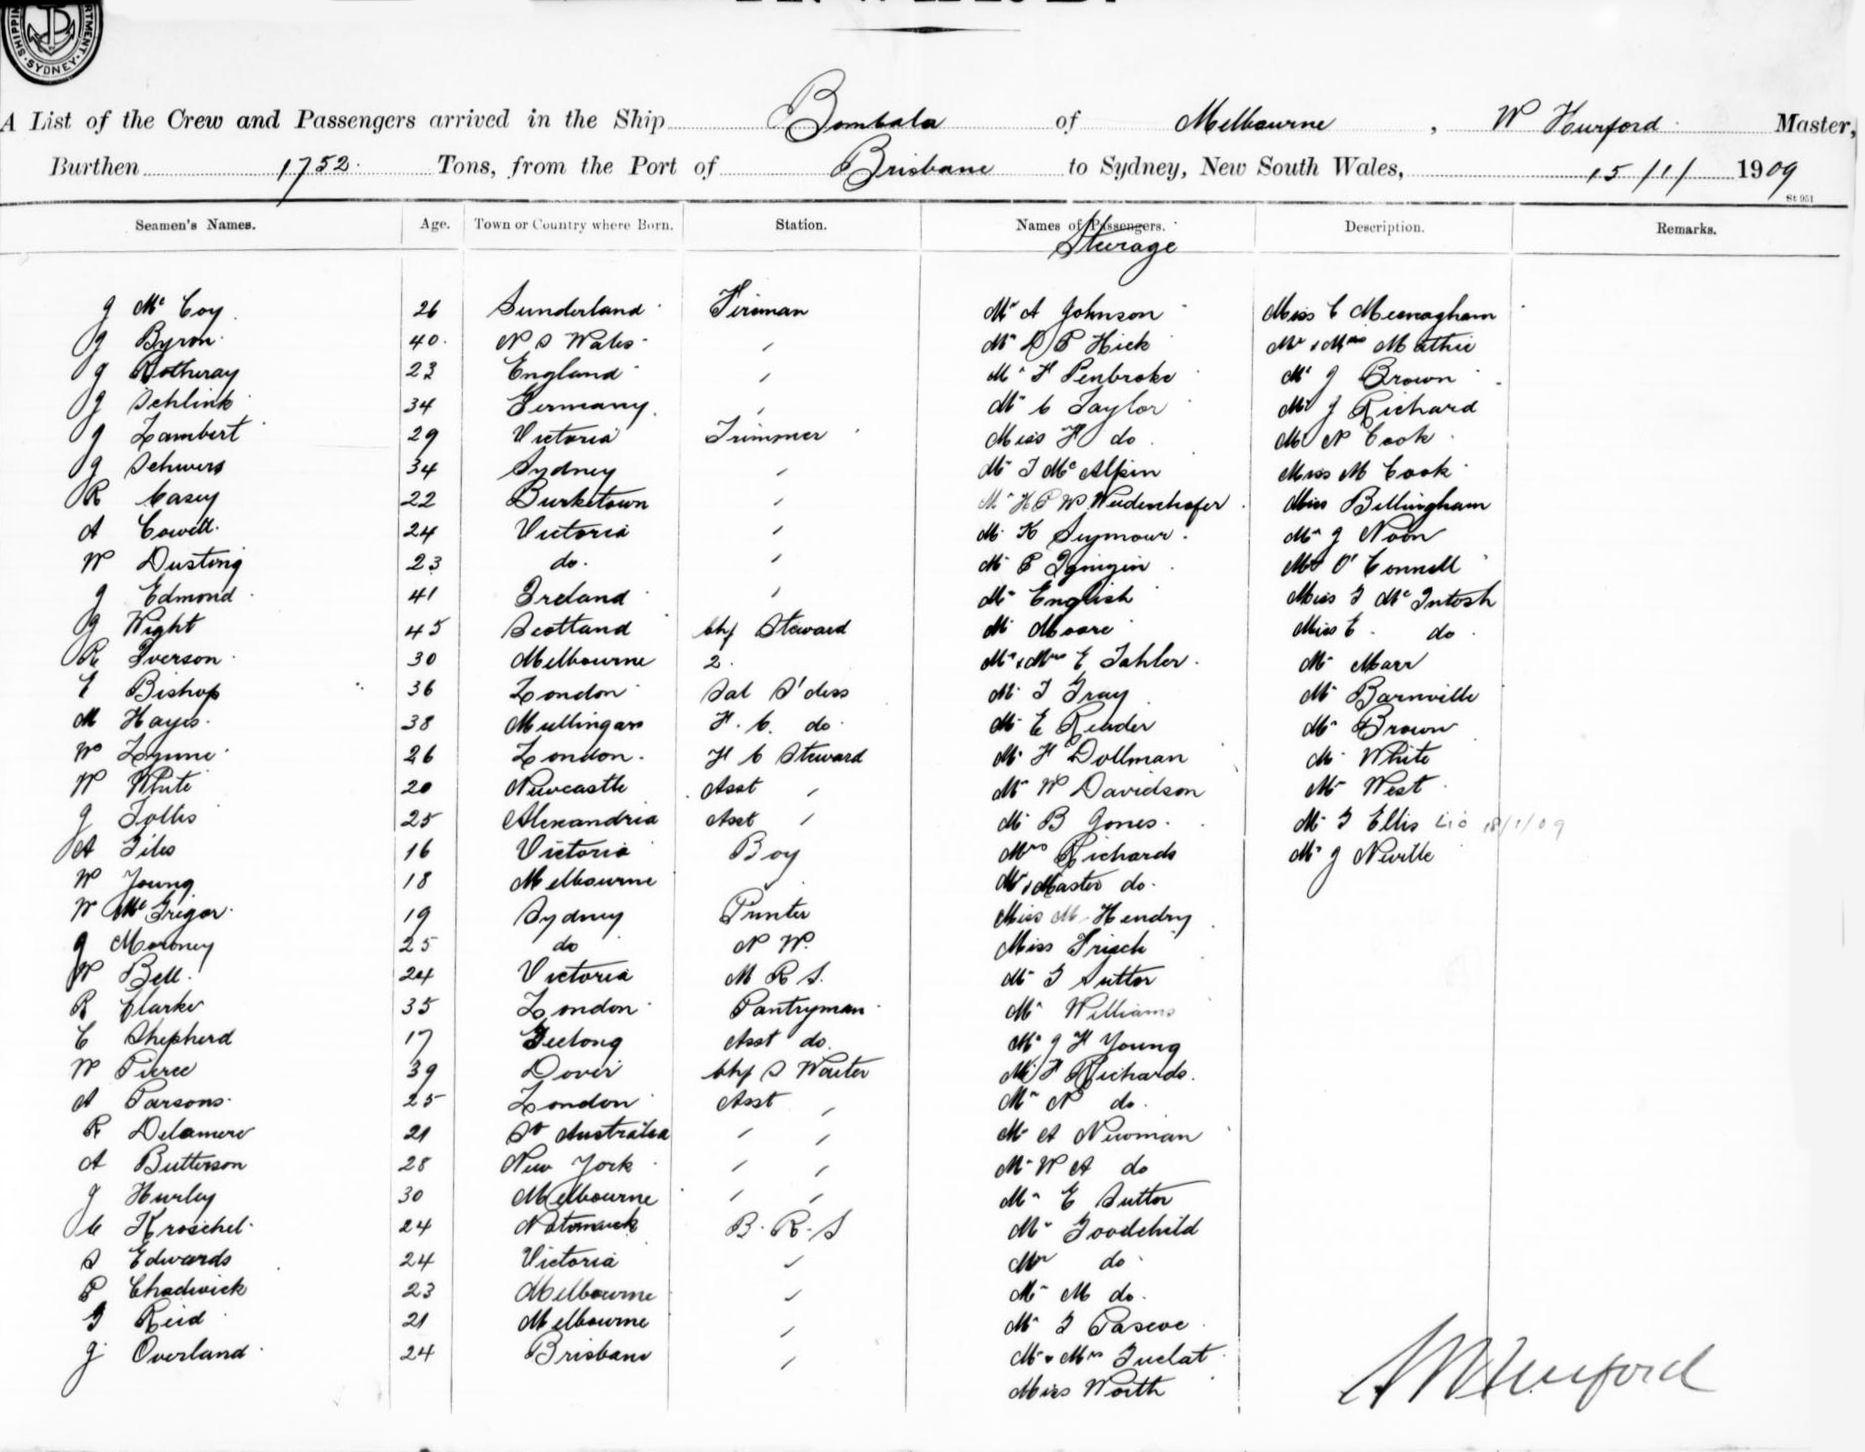 SHIPPING DEPARTMENT. SYDNEY.
A List of the Crew and Passengers arrived in the Ship Bombala of Melbourne, W Hurford Master,
Burthen 1752 Tons, from the Port of Brisbane to Sydney, New South Wales, 15/1/1909
St 951
Seamen's Names. Age. Town or Country where Born. Station. Names of Passengers. Description. Remarks.
Steerage
J McCoy 26 Sunderland Fireman Mr A Johnson Miss C
J Byron 40 N S Wales " Mr D P Hick Mr & Mrs Mathie
J 23 England " Mr F Penbroke Mr J Brown
J Schlink 34 Germany " Mr C Taylor Mr J Richard
J Lambert 29 Victoria Trimmer Miss F do Mr N Cook
J Schwers 34 Sydney " Mr J McAlpin Miss M Cook
R Casey 22 Burketown " Mr H P W Miss Bellingham
A Cowell 24 Victoria " Mr K Seymour Mr J Noon
W Dusting 23 do " Mr P O'Connell
J Edmond 41 Ireland " Mr English Miss J McIntosh
J Wight 45 Scotland Chf Steward Mr Moore Miss E do
R Iverson 30 Melbourne 2 Mr & Mrs E Tahler Mr Marr
E Bishop 36 London Sal S'dess Mr T Gray Mr Barnville
M Hayes 38 Mullingar F. C. do Mr E Reader Mr Brown
W Lynne 26 London F C Steward Mr F Dollman Mr White
W White 20 Newcastle Asst " Mr W Davidson Mr West
J 25 Alexandria Asst " Mr B Jones Mr J Ellis 18/1/09
A Giles 16 Victoria Boy Mrs Richards Mr J Neville
W Young 18 Melbourne " & Master do
W McGrigor 19 Sydney Printer Miss M Hendry
J Moroney 25 do N W. Miss Frisch
W Bell 24 Victoria M R S. Mr G Suttor
R Clarke 35 London Pantryman Mr Williams
C Shepherd 17 Geelong Asst do Mr J F Young
W Pierce 39 Dover Chf S Waiter Mr F Richards
A Parsons 25 London Asst " Mr N do
R Delamere 21 Sth Australia " " Mr A Newman
A Butterson 28 New York " " Mr W A do
J Hurley 30 Melbourne " " Mr E Suttor
C Kroschel 24 B. R. S Mr Goodchild
S Edwards 24 Victoria " do
P Chadwick 23 Melbourne " Mr M do
G Reid 21 Melbourne " Mr J Pascoe
J Overland 24 Brisbane " Mr & Mrs
Miss Worth
W Hurford